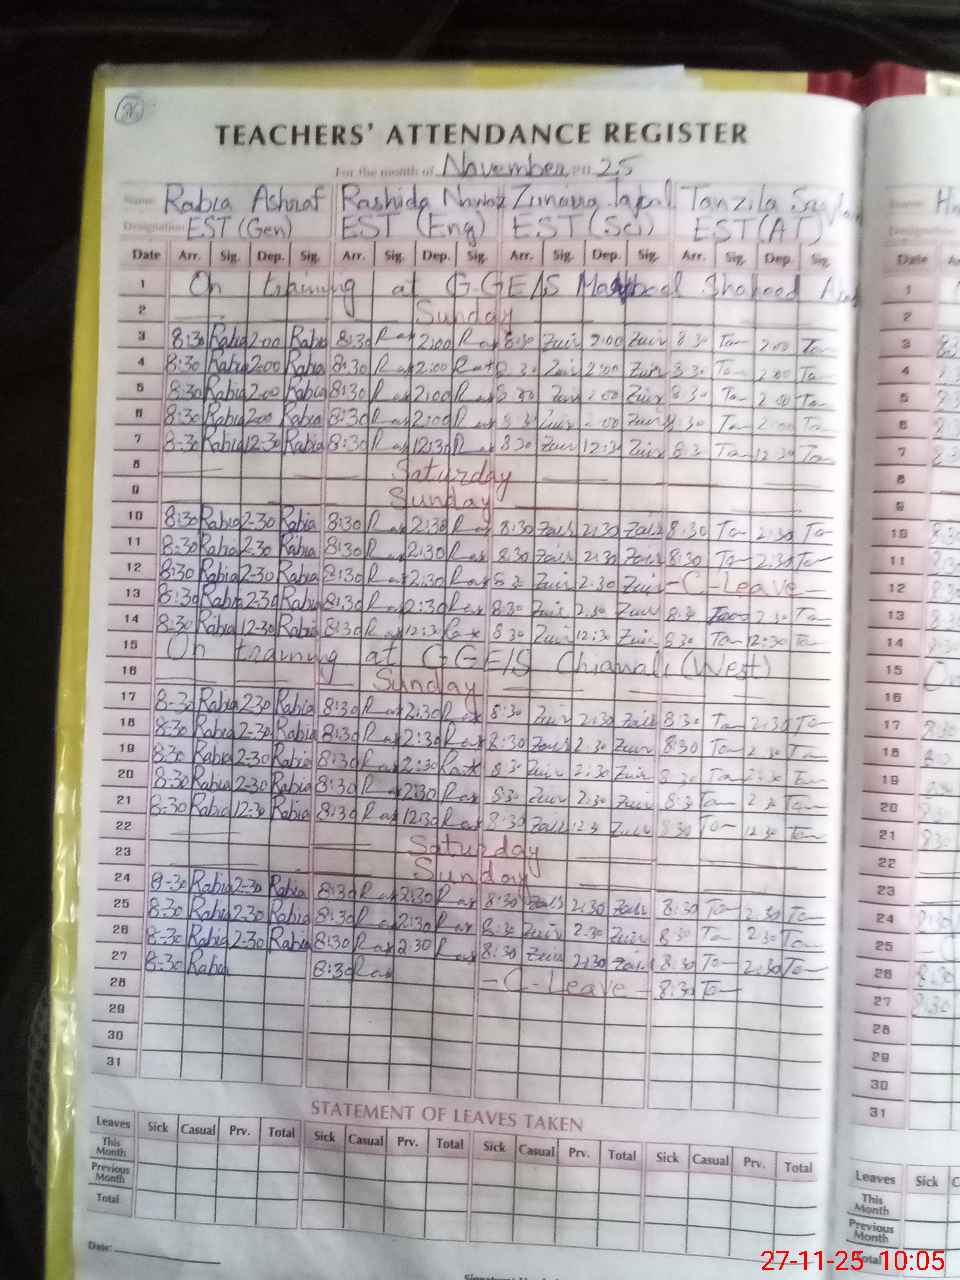 TEACHERS' ATTENDANCE REGISTER
For the month of November 20 25
Name: Rabia Ashraf Rashida Nawaz Zunaira Iqbal Tanzila
Designation: EST (Gen) EST (Eng) EST (Sci) EST (AT)
Date Arr. Sig. Dep. Sig. Arr. Sig. Dep. Sig. Arr. Sig. Dep. Sig. Arr. Sig. Dep. Sig. Date
1 On training at G.GE/S Shaheed 1
2 Sunday 2
3 8:30 Rabia 2-00 Rabia 8:30 Ras 2:00 Ras 8:30 Zuir 2:00 Zuir 8:30 Tan 2:00 Tan 3
4 8:30 Rabia 2-00 Rabia 8:30 Ras 2:00 Ras 8:30 Zuir 2:00 Zuir 8:30 Tan 2:00 Tan 4
5 8:30 Rabia 2-00 Rabia 8:30 Ras 2:00 Ras Zuir 2:00 Zuir 8:30 Tan 2:00 Tan 5
6 8:30 Rabia 2-00 Rabia 8:30 Ras 2:00 Ras 8:30 Zuir 2:00 Zuir 8:30 Tan 2:00 Tan 6
7 8:30 Rabia 12-30 Rabia 8:30 Ras 12:30 Ras 8:30 Zuir 12:30 Zuir 8:30 Tan 12:30 Tan 7
8 Saturday 8
9 Sunday 9
10 8:30 Rabia 2-30 Rabia 8:30 Ras 2:30 Ras 8:30 Zuir 2:30 Zuir 8:30 Tan 2:30 Tan 10
11 8:30 Rabia 2-30 Rabia 8:30 Ras 2:30 Ras 8:30 Zuir 2:30 Zuir 8:30 Tan 2:30 Tan 11
12 8:30 Rabia 2-30 Rabia 8:30 Ras 2:30 Ras 8:30 Zuir 2:30 Zuir -C-Leave- 12
13 8:30 Rabia 2-30 Rabia 8:30 Ras 2:30 Ras 8:30 Zuir 2:30 Zuir 8:30 2:30 Tan 13
14 8:30 Rabia 12-30 Rabia 8:30 Ras 12:30 Ras 8:30 Zuir 12:30 Zuir 8:30 Tan 12:30 Tan 14
15 On training at GGE/S Chianwali (West) 15
16 Sunday 16
17 8-30 Rabia 2-30 Rabia 8:30 Ras 2:30 Ras 8:30 Zuir 2:30 Zuir 8:30 Tan 2:30 Tan 17
18 8:30 Rabia 2-30 Rabia 8:30 Ras 2:30 Ras 8:30 Zuir 2:30 Zuir 8:30 Tan 2:30 Tan 18
19 8:30 Rabia 2-30 Rabia 8:30 Ras 2:30 Ras 8:30 Zuir 2:30 Zuir 8:30 Tan 2:30 Tan 19
20 8:30 Rabia 2-30 Rabia 8:30 Ras 2:30 Ras 8:30 Zuir 2:30 Zuir 8:30 Tan 2:30 Tan 20
21 8:30 Rabia 12-30 Rabia 8:30 Ras 12:30 Ras 8:30 Zuir 12:30 Zuir 8:30 Tan 12:30 Tan 21
22 Saturday 22
23 Sunday 23
24 8-30 Rabia 2-30 Rabia 8:30 Ras 2:30 Ras 8:30 Zuir 2:30 Zuir 8:30 Tan 2:30 Tan 24
25 8:30 Rabia 2-30 Rabia 8:30 Ras 2:30 Ras 8:30 Zuir 2:30 Zuir 8:30 Tan 2:30 Tan 25
26 8:30 Rabia 2-30 Rabia 8:30 Ras 2:30 Ras 8:30 Zuir 2:30 Zuir 8:30 Tan 2:30 Tan 26
27 8-30 Rabia 8:30 Ras -C-Leave- 8:30 Tan 27
28 28
29 29
30 30
31 31
STATEMENT OF LEAVES TAKEN
Leaves Sick Casual Prv. Total Sick Casual Prv. Total Sick Casual Prv. Total Sick Casual Prv. Total Leaves Sick
This Month This Month
Previous Month Previous Month
Total Total
Date:
27-11-25 10:05